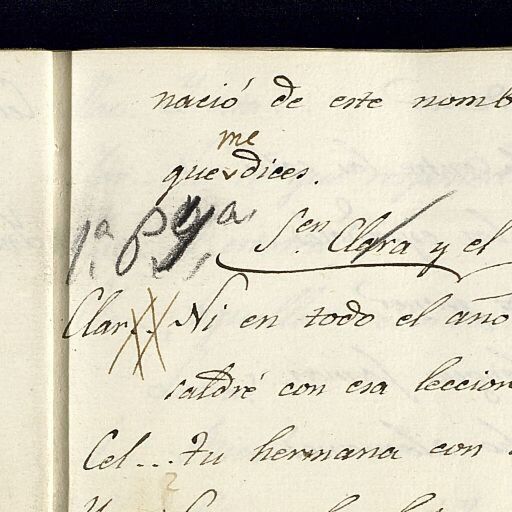 nació de este nomb
me
que dices.
1ª
Sen Clara y el
Clar.. Ni en todo el año
saldré con esa leccion
Cel... tu hermana con